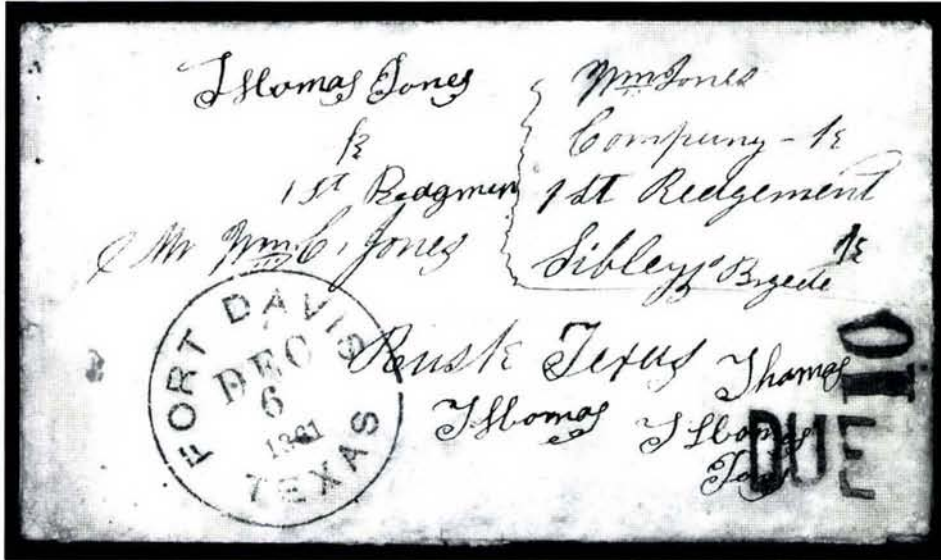 Thomas Jones
1st Redgmen
Mr Wm C. Jones
Wm Jones
Company - K
1st Redgement
Sibleys Brgede
FORT DAVIS
DEC
6
1861
TEXAS
Rusk Texas
Thomas
Thomas
Thomas
DUE 10